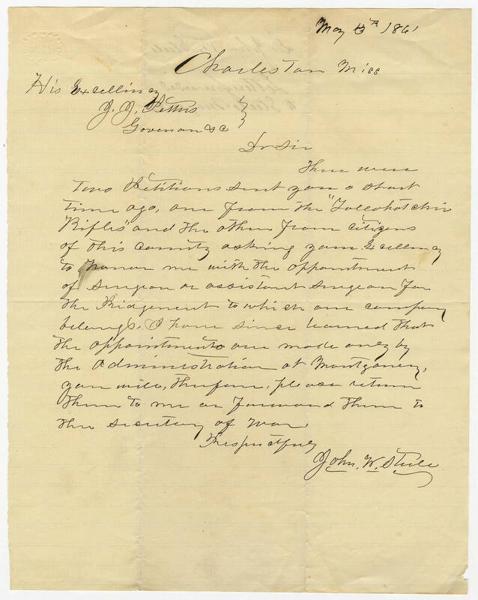 May 8th 1861
Charleston Miss
His Excellincy
J. J. Pettus
Govenor &c
Dr Sir
There were
Two Petitions sent you a short
time ago, one from the "Tallahatchie
Rifles" and the other from citizens
of this county asking your Excellency
to honor me with the appointment
of surgeon or assistant surgeon for
the Ridgement to which our company
belongs. I have since learned that
the appointments are made only by
the Administration at Montgomery,
you will, therefore, please return
them to me or forward them to
the secretary of War
Respectfully
John. W. Steele